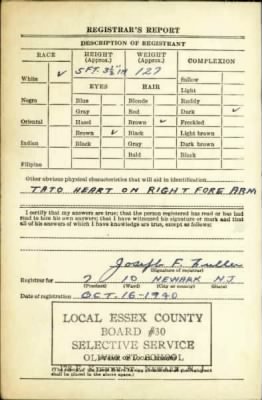 REGISTRAR'S REPORT
DESCRIPTION OF REGISTRANT
RACE HEIGHT (Approx.) WEIGHT (Approx.) COMPLEXION
White ✓ 5 FT. 3½ IN 127 Sallow
EYES HAIR Light
Negro Blue Blonde Ruddy
Gray Red Dark ✓
Oriental Hazel Brown ✓ Freckled
Brown ✓ Black Light brown
Indian Black Gray Dark brown
Bald Black
Filipino
Other obvious physical characteristics that will aid in identification
TATO HEART ON RIGHT FORE ARM
I certify that my answers are true; that the person registered has read or has had
read to him his own answers; that I have witnessed his signature or mark and that
all of his answers of which I have knowledge are true, except as follows:
Joseph F.
(Signature of registrar)
Registrar for 7 10 NEWARK N.J.
(Precinct) (Ward) (City or county) (State)
Date of registration OCT. 16-1940
LOCAL ESSEX COUNTY
BOARD #30
SELECTIVE SERVICE
SCHOOL
NEWARK, N.J.
shall be placed in the above space.)